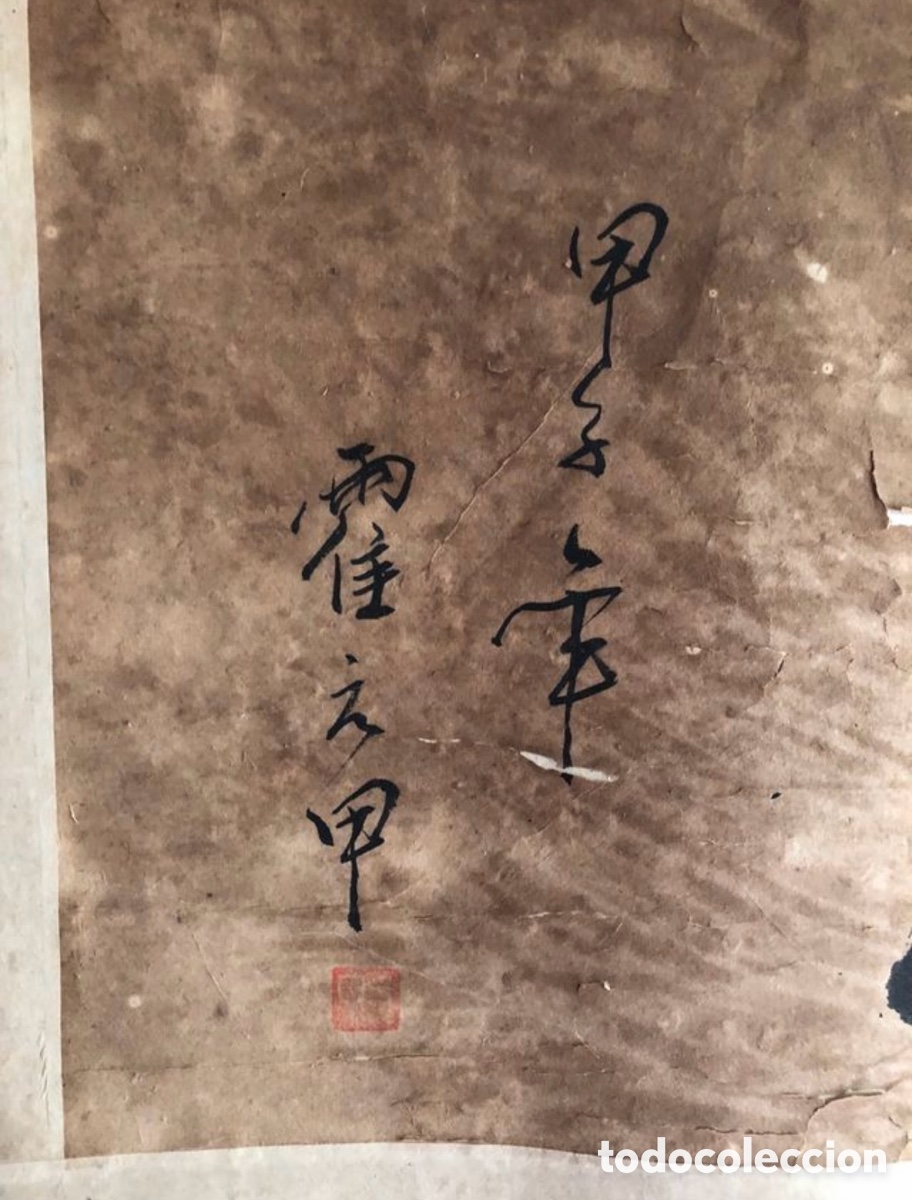 甲子年
霍元甲
todocoleccion